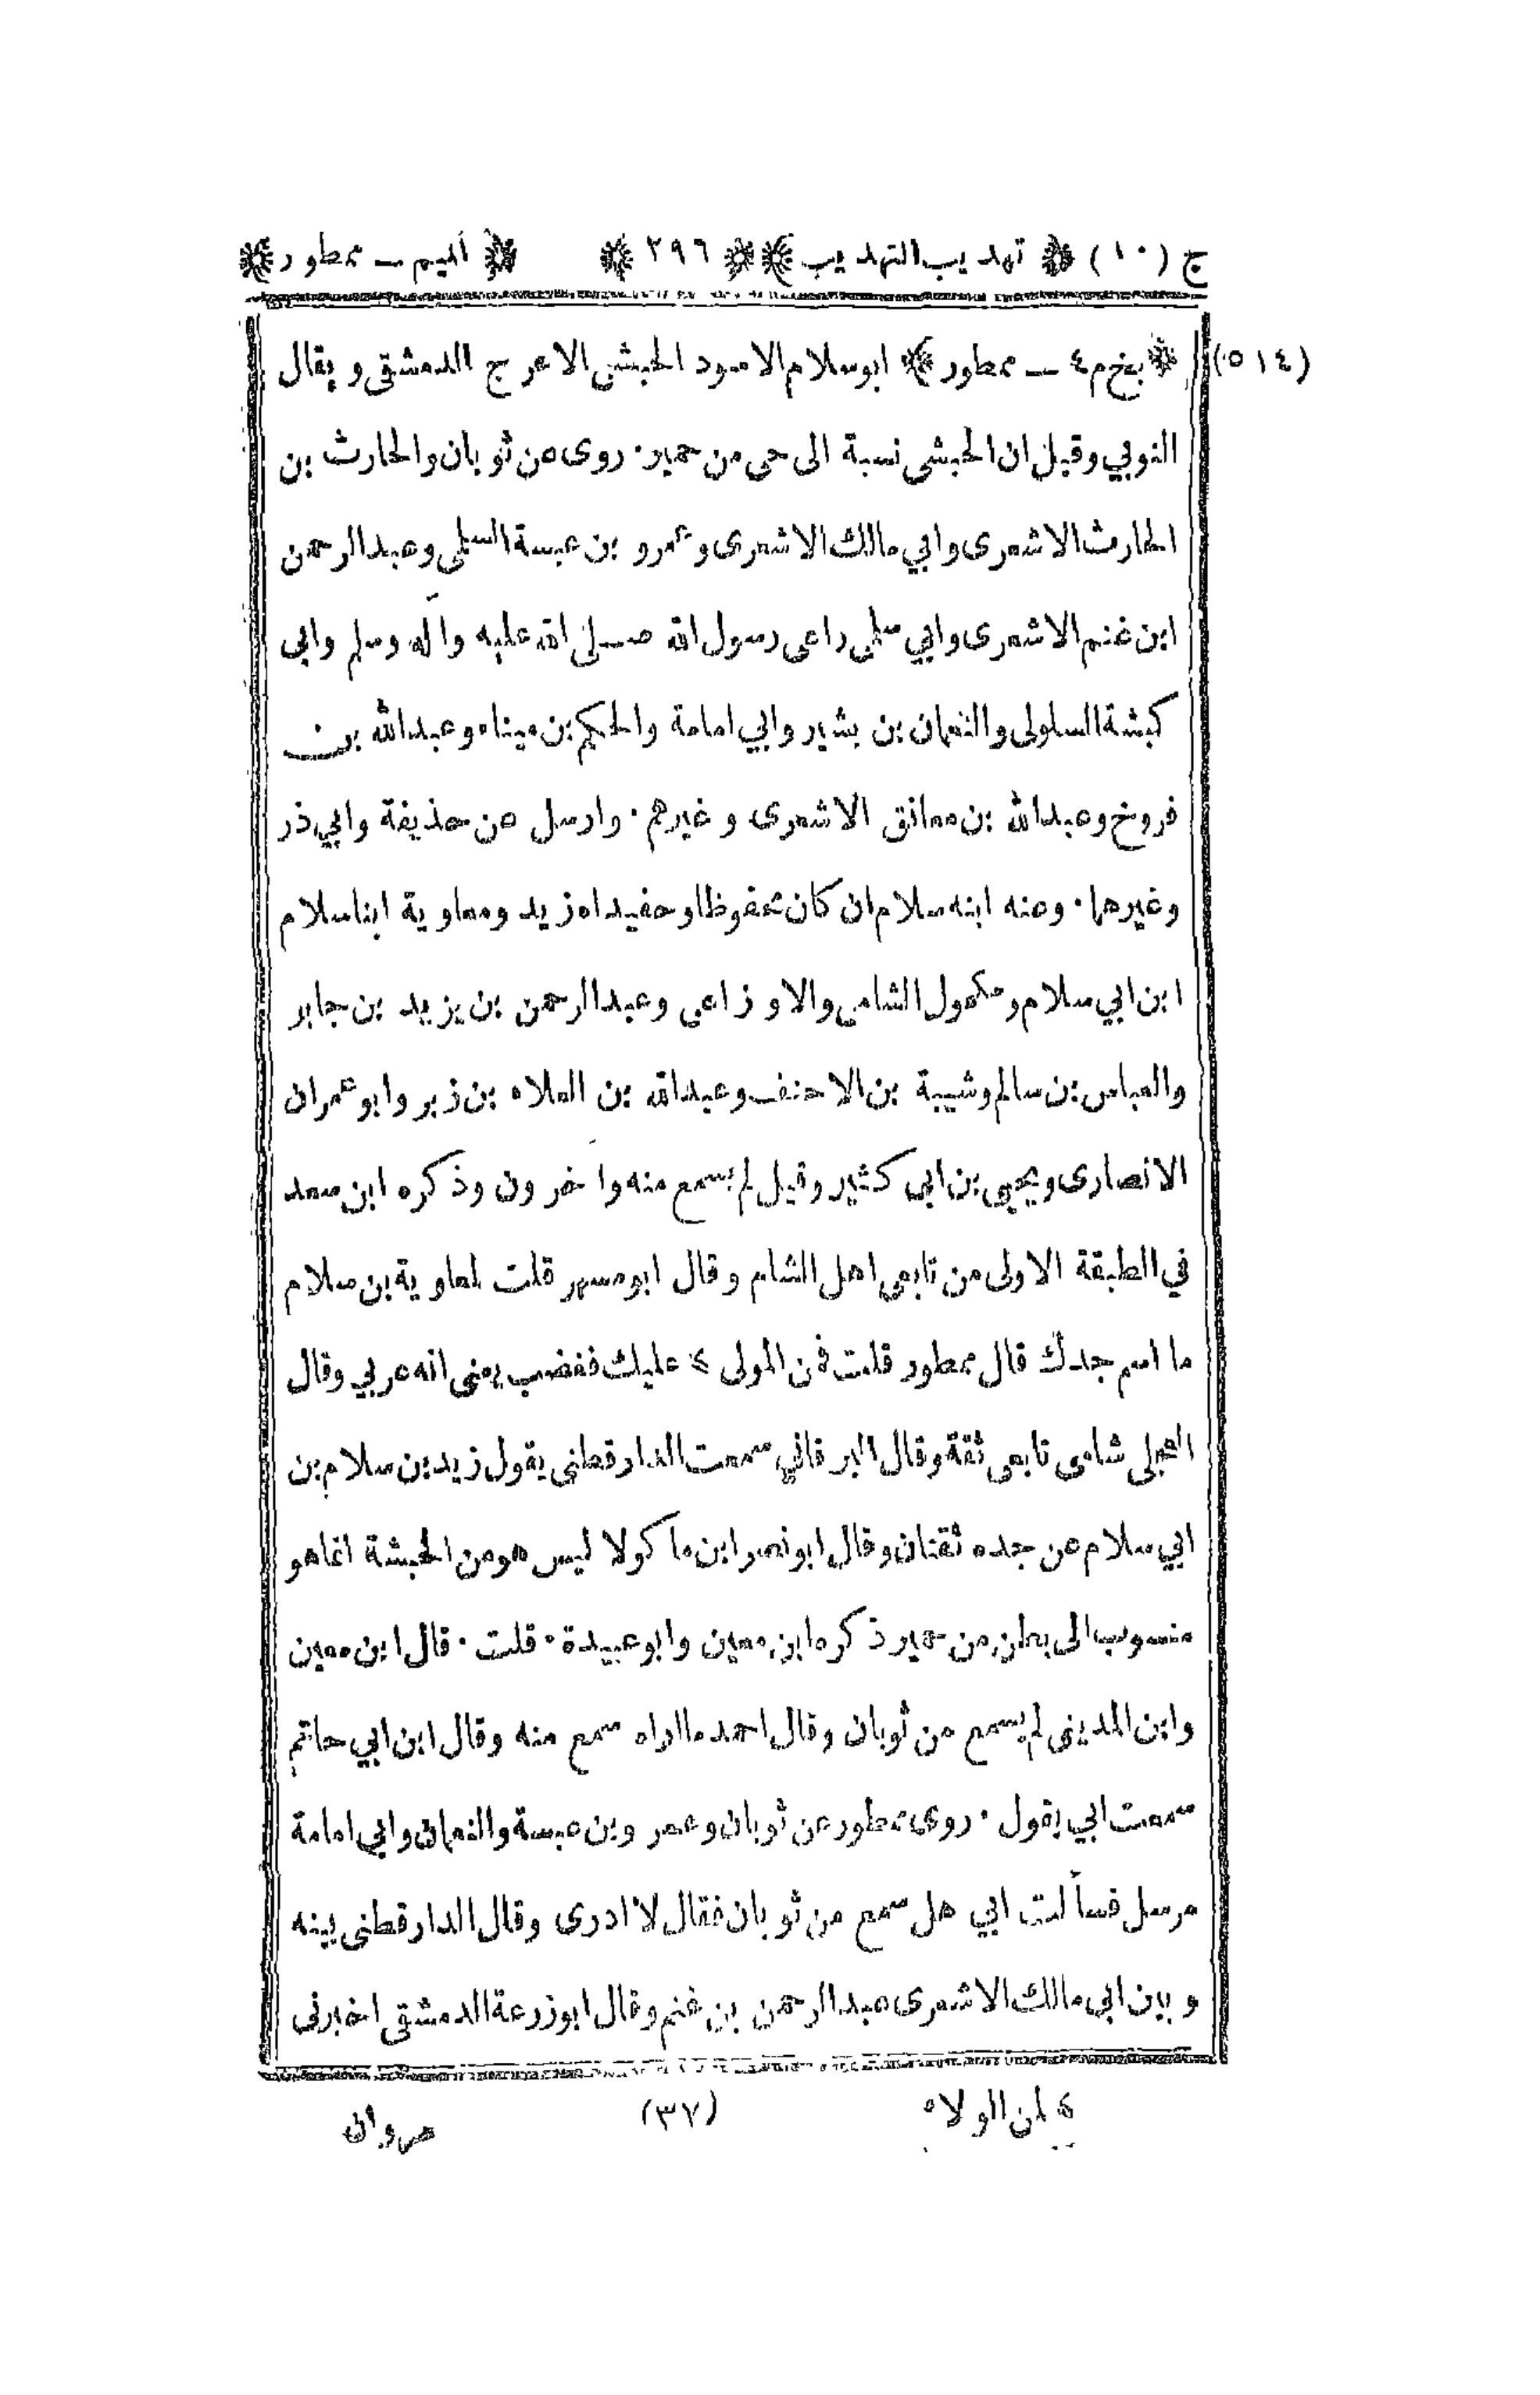 ج (١٠) ﴿ تهذيب التهذيب ﴾ ﴿ ٢٩٦ ﴾ ﴿ الميم ـ ممطور ﴾
(٥١٤) ﴿ بخ م ٤ ـ ممطور ﴾ ابو سلام الاسود الحبشي الاعرج الدمشقي و يقال
النوبي وقيل ان الحبشي نسبة الى حي من حمير٠ روى عن ثوبان والحارث بن
الحارث الاشعرى وابي مالك الاشعرى وعمرو بن عبسة السلمى وعبدالرحمن
ابن غنم الاشعرى وابي سلمى راعى رسول الله صلى الله عليه وآله وسلم وابى
كبشة السلولى والنعمان بن بشير وابي امامة والحكم بن ميناء وعبدالله بن
فروخ وعبدالله بن معانق الاشعرى وغيرهم٠ وارسل عن حذيفة وابي ذر
وغيرهما٠ وعنه ابنه سلام ان كان محفوظا وحفيداه زيد ومعاوية ابنا سلام
ابن ابي سلام ومكحول الشامى والاوزاعى وعبدالرحمن بن يزيد بن جابر
والعباس بن سالم وشيبة بن الاحنف وعبدالله بن العلاء بن زبر وابو عمران
الانصارى ويحيى بن ابى كثير وقيل لم يسمع منه وآخرون وذكره ابن سعد
في الطبقة الاولى من تابعى اهل الشام وقال ابو مسهر قلت لمعاوية بن سلام
ما اسم جدك قال ممطور قلت فمن المولى ٤ عليك فغضب يعنى انه عربي وقال
العجلى شامى تابعى ثقة وقال البرقاني سمعت الدارقطنى يقول زيد بن سلام بن
ابي سلام عن جده ثقتان وقال ابو نصر ابن ماكولا ليس هو من الحبشة انما هو
منسوب الى بطن من حمير ذكره ابن معين وابو عبيدة٠ قلت٠ قال ابن معين
وابن المدينى لم يسمع من ثوبان وقال احمد ما اراه سمع منه وقال ابن ابي حاتم
سمعت ابي يقول٠ روى ممطور عن ثوبان وعمرو بن عبسة والنعمان وابي امامة
مرسل فسألت ابي هل سمع من ثوبان فقال لا ادرى وقال الدارقطنى بينه
وبين ابي مالك الاشعرى عبدالرحمن بن غنم وقال ابو زرعة الدمشقى اخبرنى
٤ لمن الولاء (٣٧) مروان